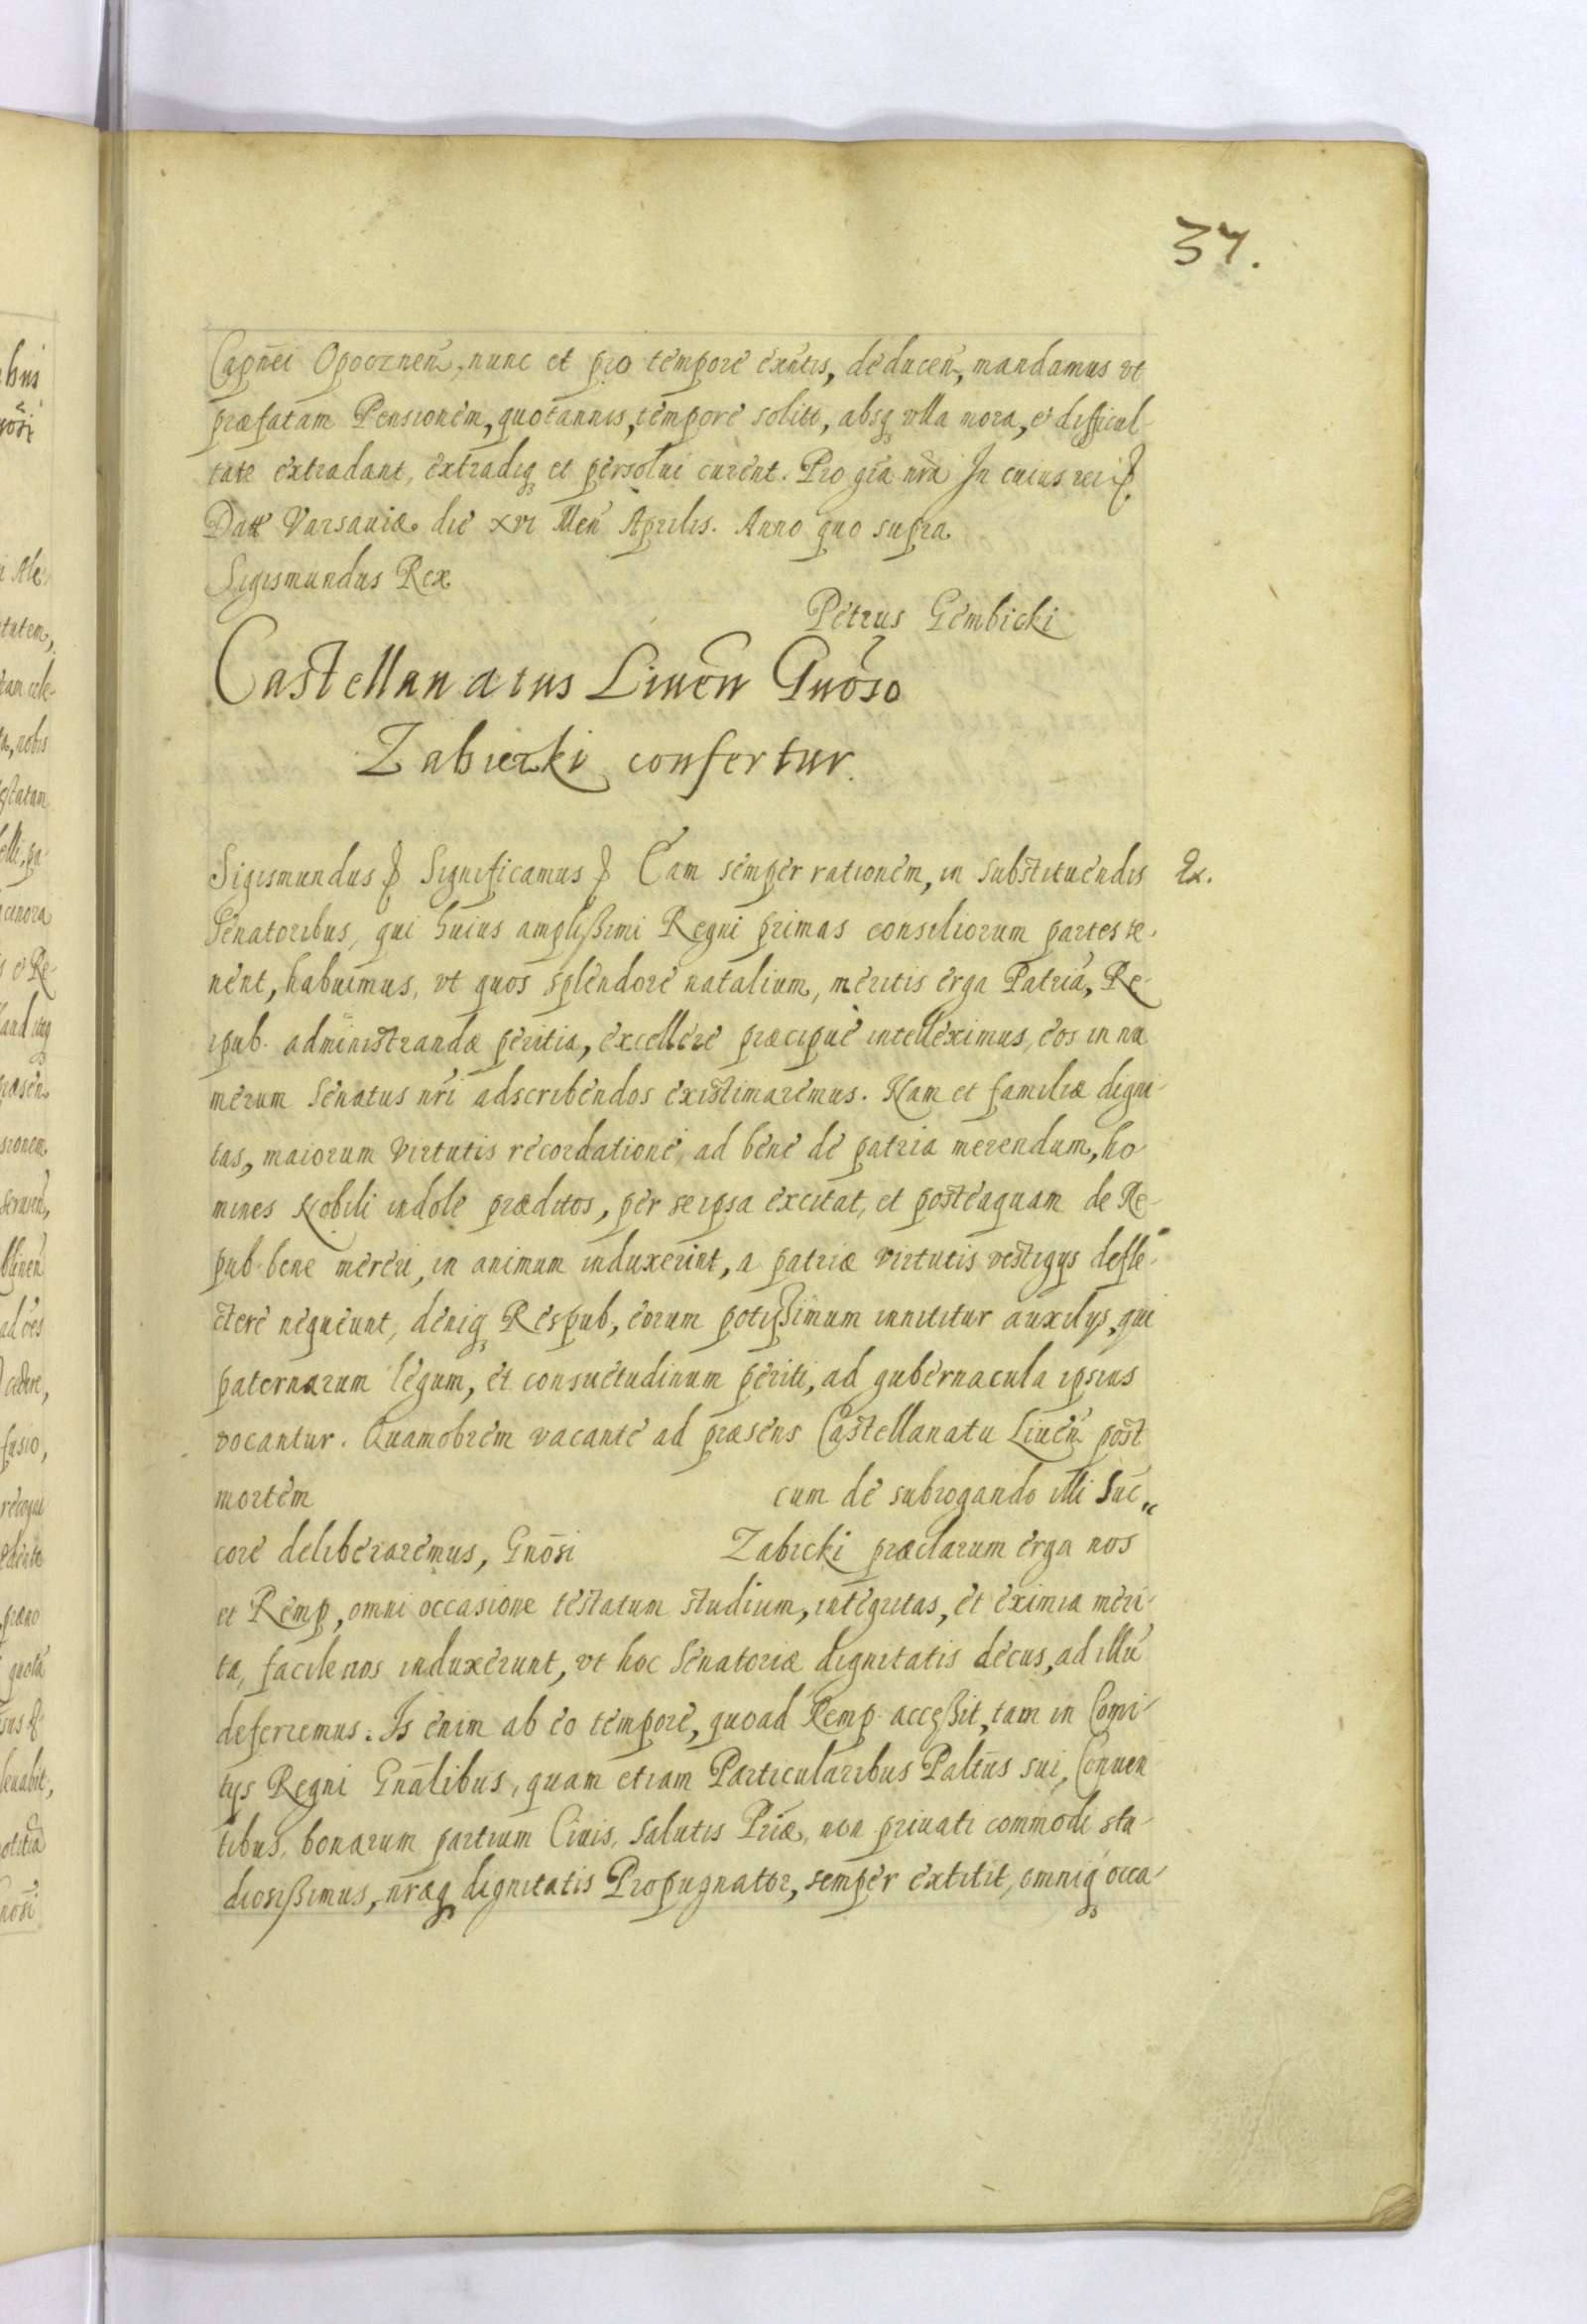 37.
Capnei Opocznen, nunc et pro tempore exntis, deducen, mandamus vt
præfatam Pensionem, quotannis, tempore solito, absq vlla mora, et difficul-
tate extradant, extradiq et persolui curent. Pro gra nra In cuius rei
Datt Varsauiæ die xvi Men Aprilis. Anno quo supra
Sigismundus Rex
Petrus Gembicki
Castellanatus Liuen Gnoso
Zabicki confertur.
Sigismundus Significamus Eam semper rationem, in substituendis
Senatoribus, qui huius amplißimi Regni primas consiliorum partes te-
nent, habuimus, vt quos splendore natalium, meritis erga Patriā, Re-
ipub. administrandæ peritia, excellere præcipuè intelleximus, eos in nu
merum Senatus nrī adscribendos existimaremus. Nam et familiæ digni-
tas, maiorum virtutis recordatione, ad bene de patria merendum, ho
mines Nobili indole præditos, per se ipsa excitat, et posteaquam de Re-
pub. bene mereri, in animum induxerint, a patriæ virtutis vestigys defle-
ctere nequeunt, deniq Respub, eorum potißimum innititur auxilys, qui
paternarum legum, et consuetudinum periti, ad gubernacula ipsius
vocantur. Quamobrem vacante ad præsens Castellanatu Liuen post
mortem cum de subrogando illi Suc„
core deliberaremus, Gnōsi Zabicki præclarum erga nos
et Remp, omni occasione testatum studium, integritas, et eximia meri-
ta, facile nos induxerunt, vt hoc Senatoriæ dignitatis decus, ad illū
deferremus. Is enim ab eo tempore, quo ad Remp. acceßit, tam in Comi-
tys Regni Gnālibus, quam etiam Particularibus Paltūs sui, Conuen
tibus, bonarum partium Ciuis, Salutis Priæ, non priuati commodi stu-
diosißimus, nræq dignitatis Propugnator, semper extitit, omniq occa-